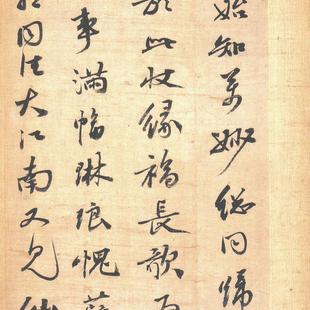 始知万妙總同歸
於此收緣福長歌
事滿幅琳琅愧
同法大江南又見